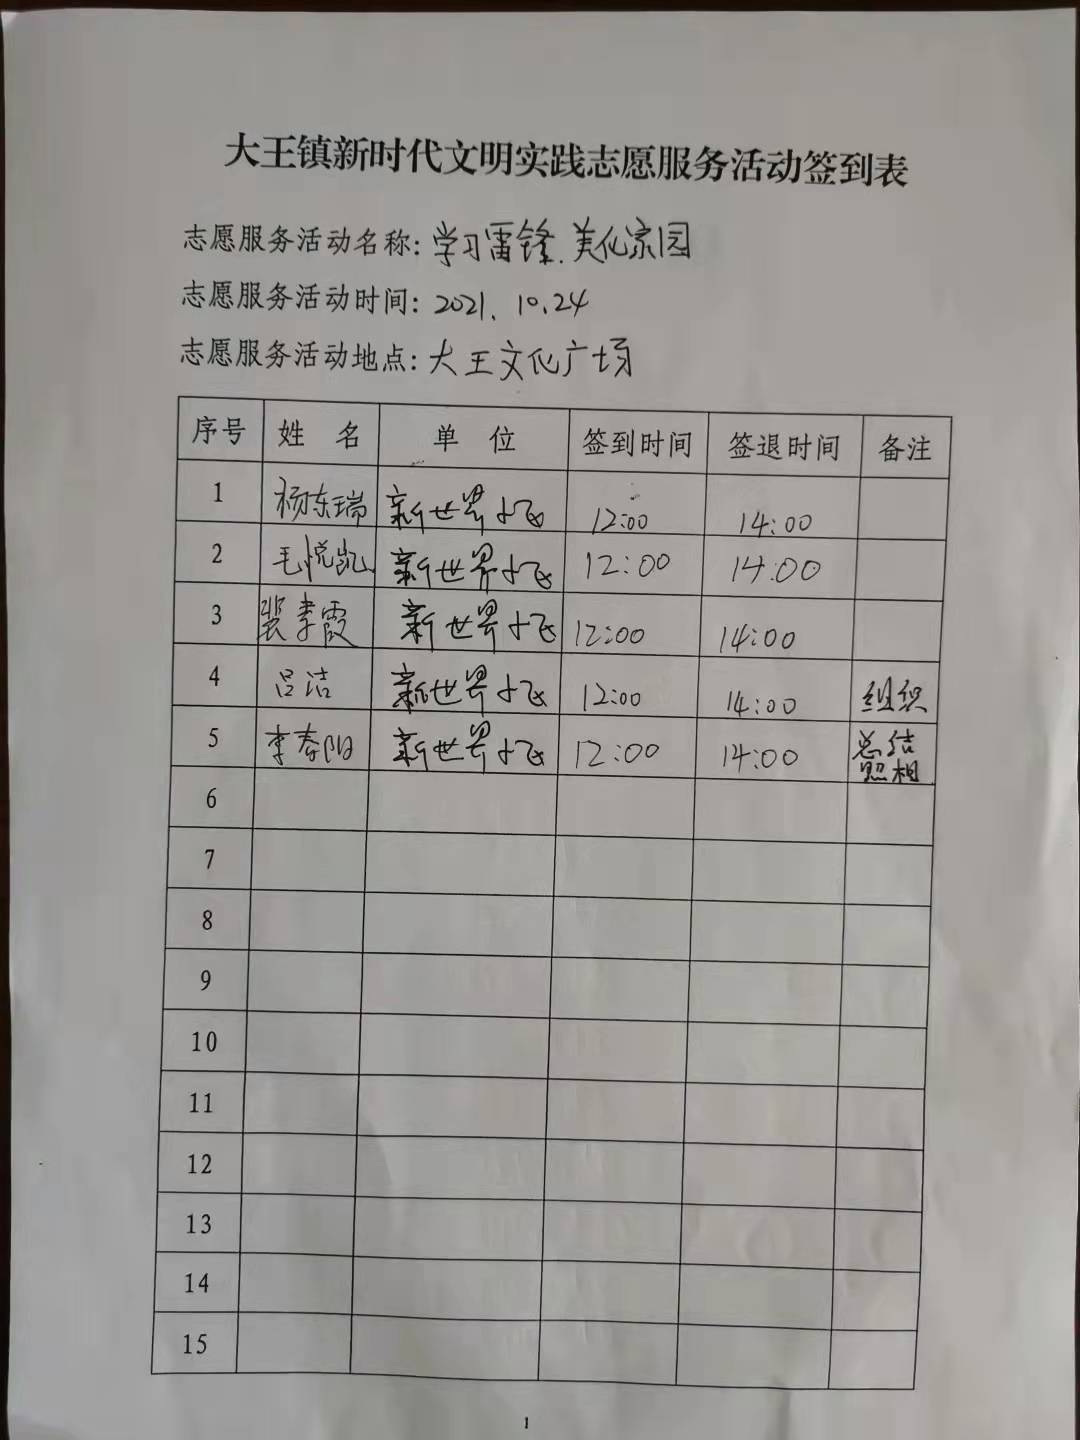 大王镇新时代文明实践志愿服务活动签到表
志愿服务活动名称：学习雷锋.美化家园
志愿服务活动时间：2021.10.24
志愿服务活动地点：大王文化广场
序号 姓名 单位 签到时间 签退时间 备注
1 杨东瑞 新世界 12:00 14:00
2 毛悦凯 新世界 12:00 14:00
3 新世界 12:00 14:00
4 吕洁 新世界 12:00 14:00 组织
5 李春阳 新世界 12:00 14:00 总结照相
6
7
8
9
10
11
12
13
14
15
1